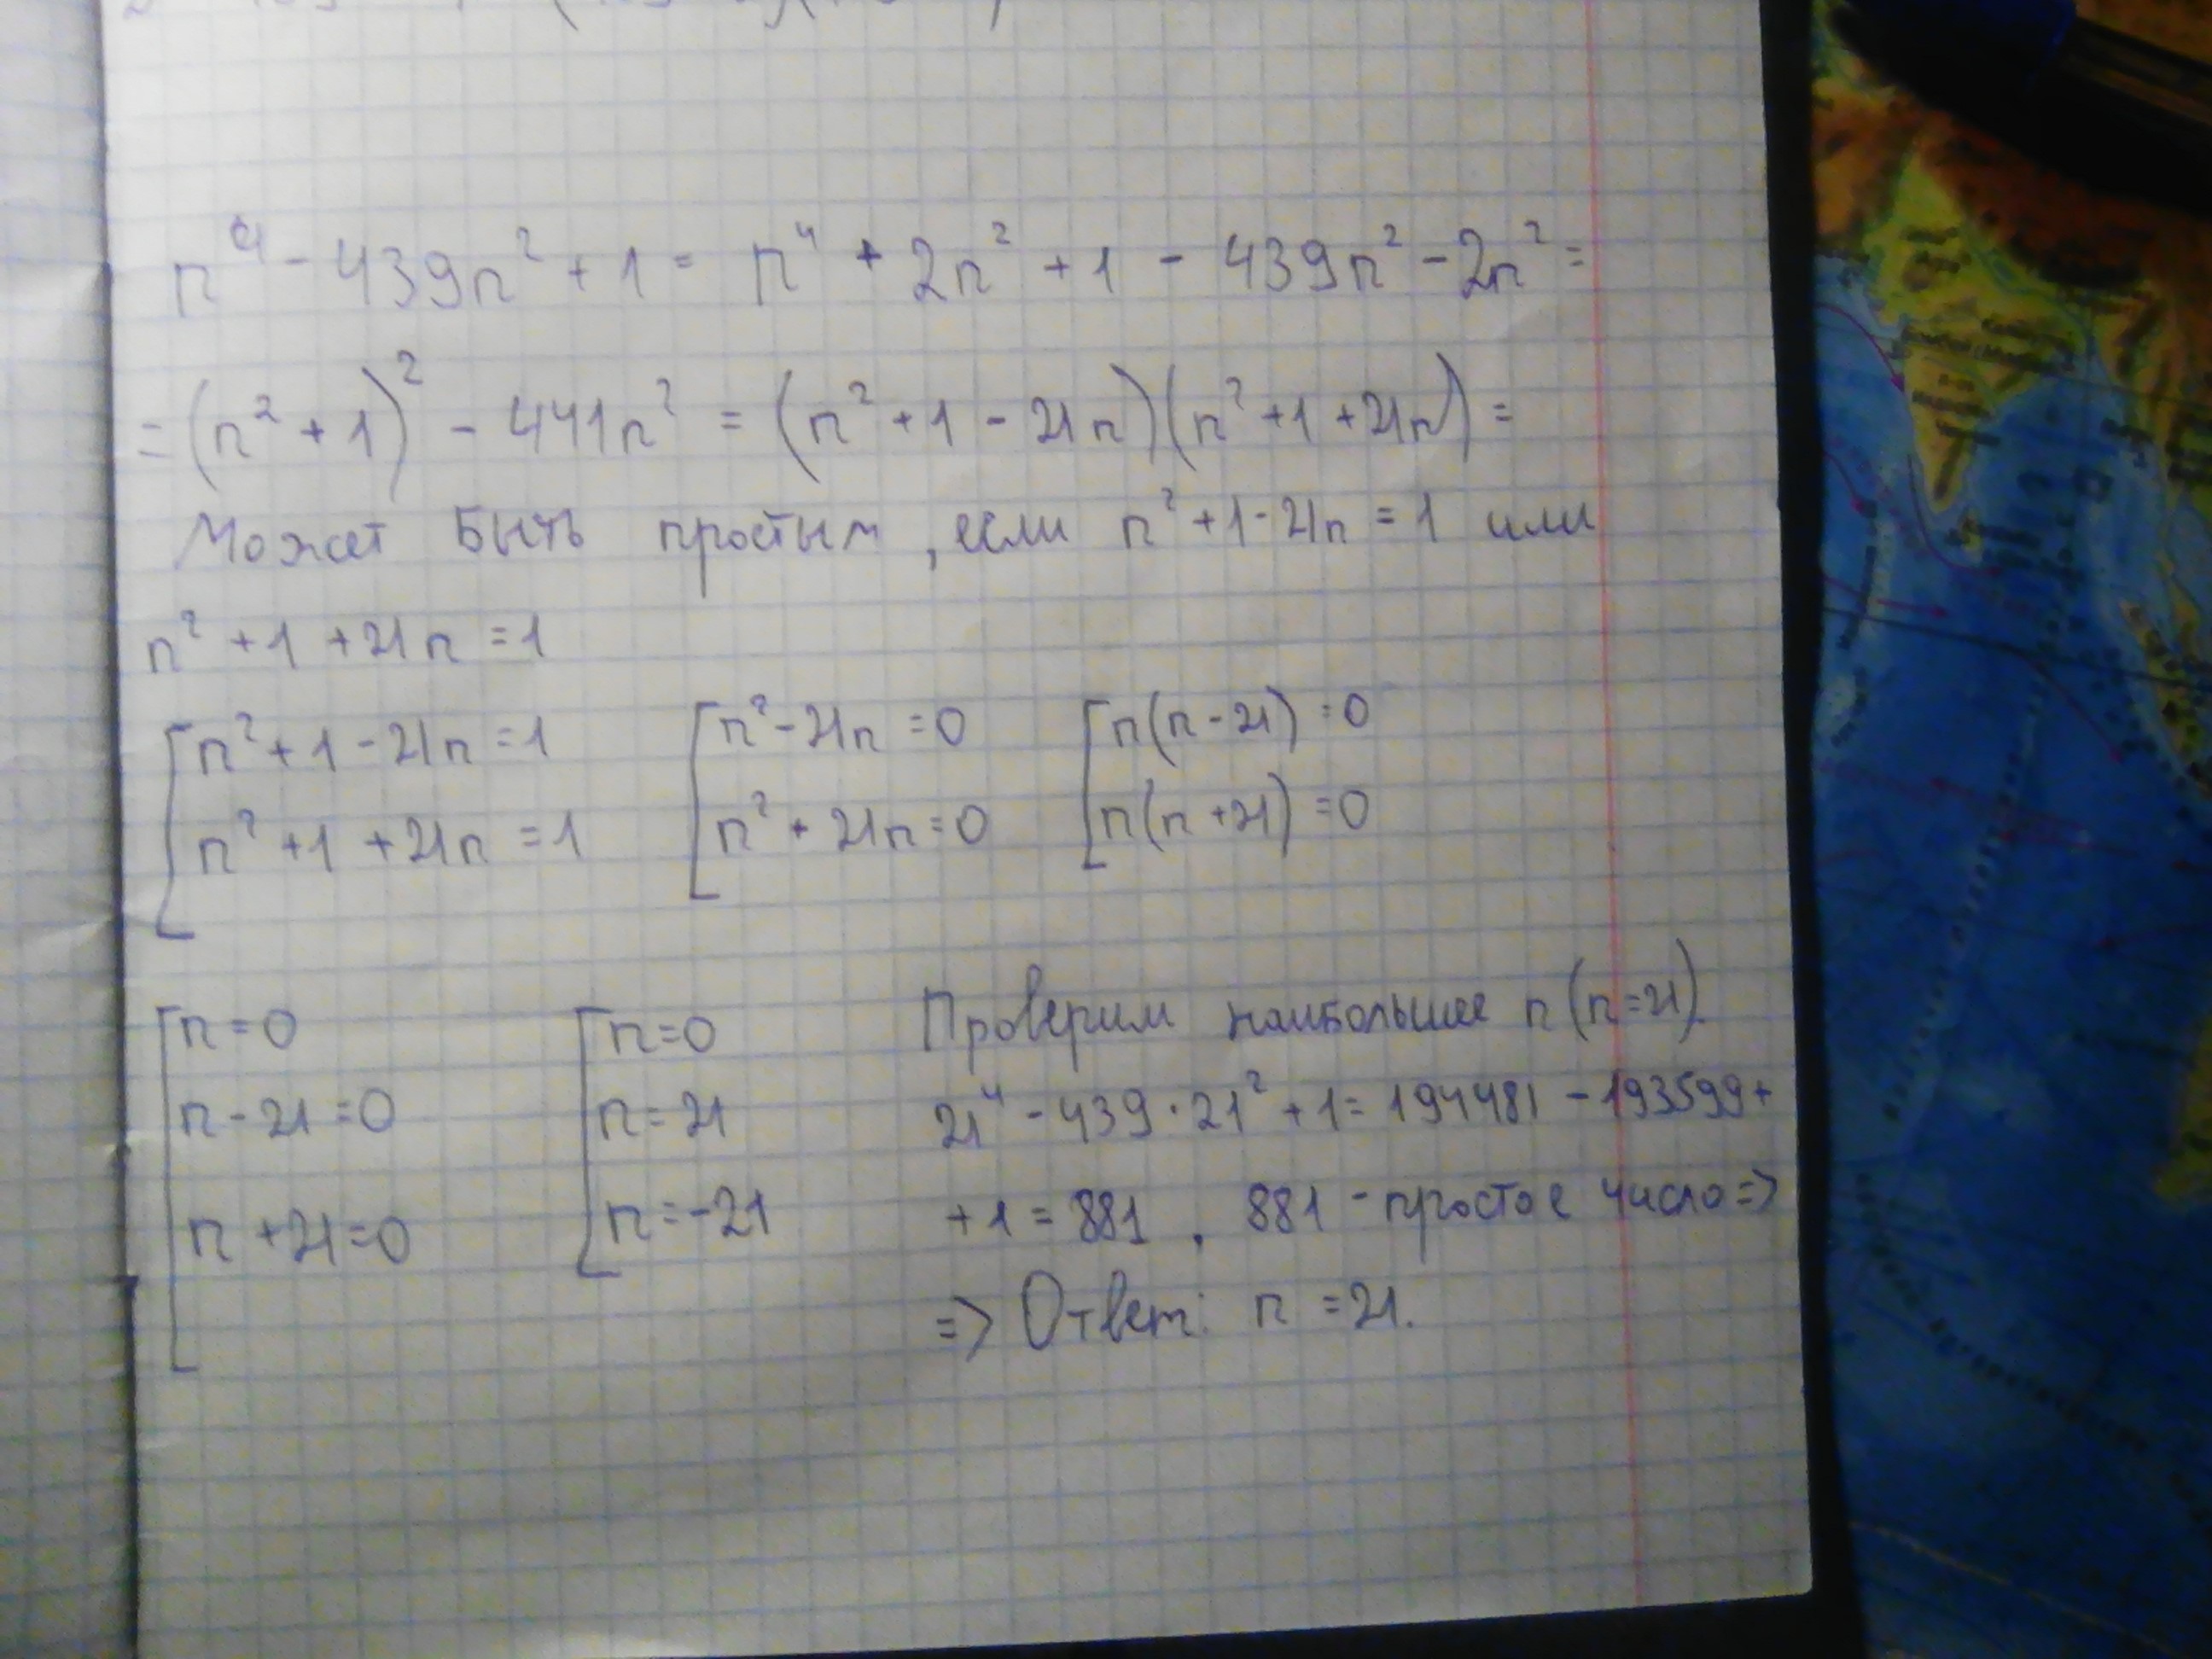 n⁴ - 439n² + 1 = n⁴ + 2n² + 1 - 439n² - 2n² =
= (n² + 1)² - 441n² = (n² + 1 - 21n)(n² + 1 + 21n) =
Может быть простым, если n² + 1 - 21n = 1 или
n² + 1 + 21n = 1
[n² + 1 - 21n = 1 [n² - 21n = 0 [n(n - 21) = 0
n² + 1 + 21n = 1 n² + 21n = 0 n(n + 21) = 0
[n = 0 [n = 0 Проверим наибольшее n (n = 21).
n - 21 = 0 n = 21 21⁴ - 439 · 21² + 1 = 194481 - 193599 +
n + 21 = 0 n = -21 + 1 = 881, 881 - простое число =>
=> Ответ: n = 21.